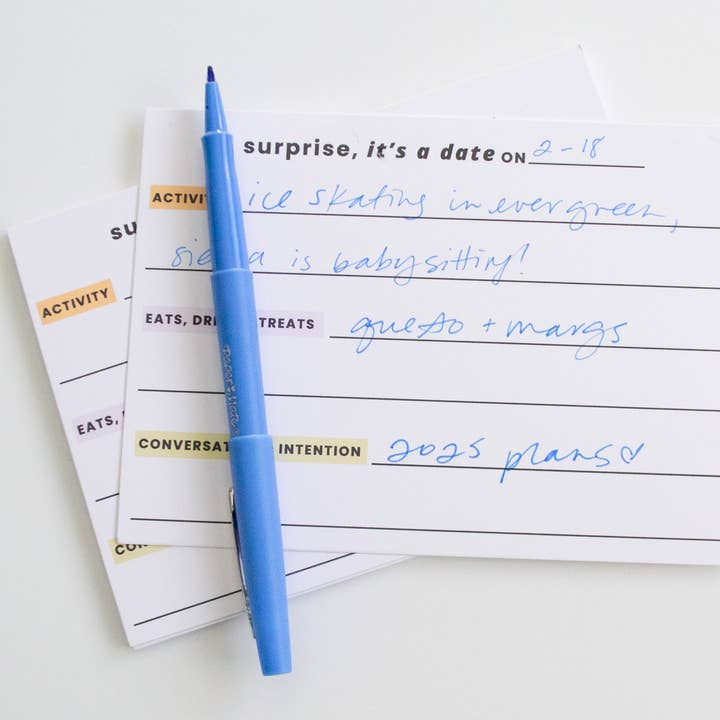 surprise, it's a date ON 2-18
ACTIVIT ice skating in evergreen,
sie a is babysitting!
EATS, DRI TREATS queso + margs
CONVERSAT INTENTION 2025 plans♡
su
ACTIVITY
EATS,
CON
Paper:Mate